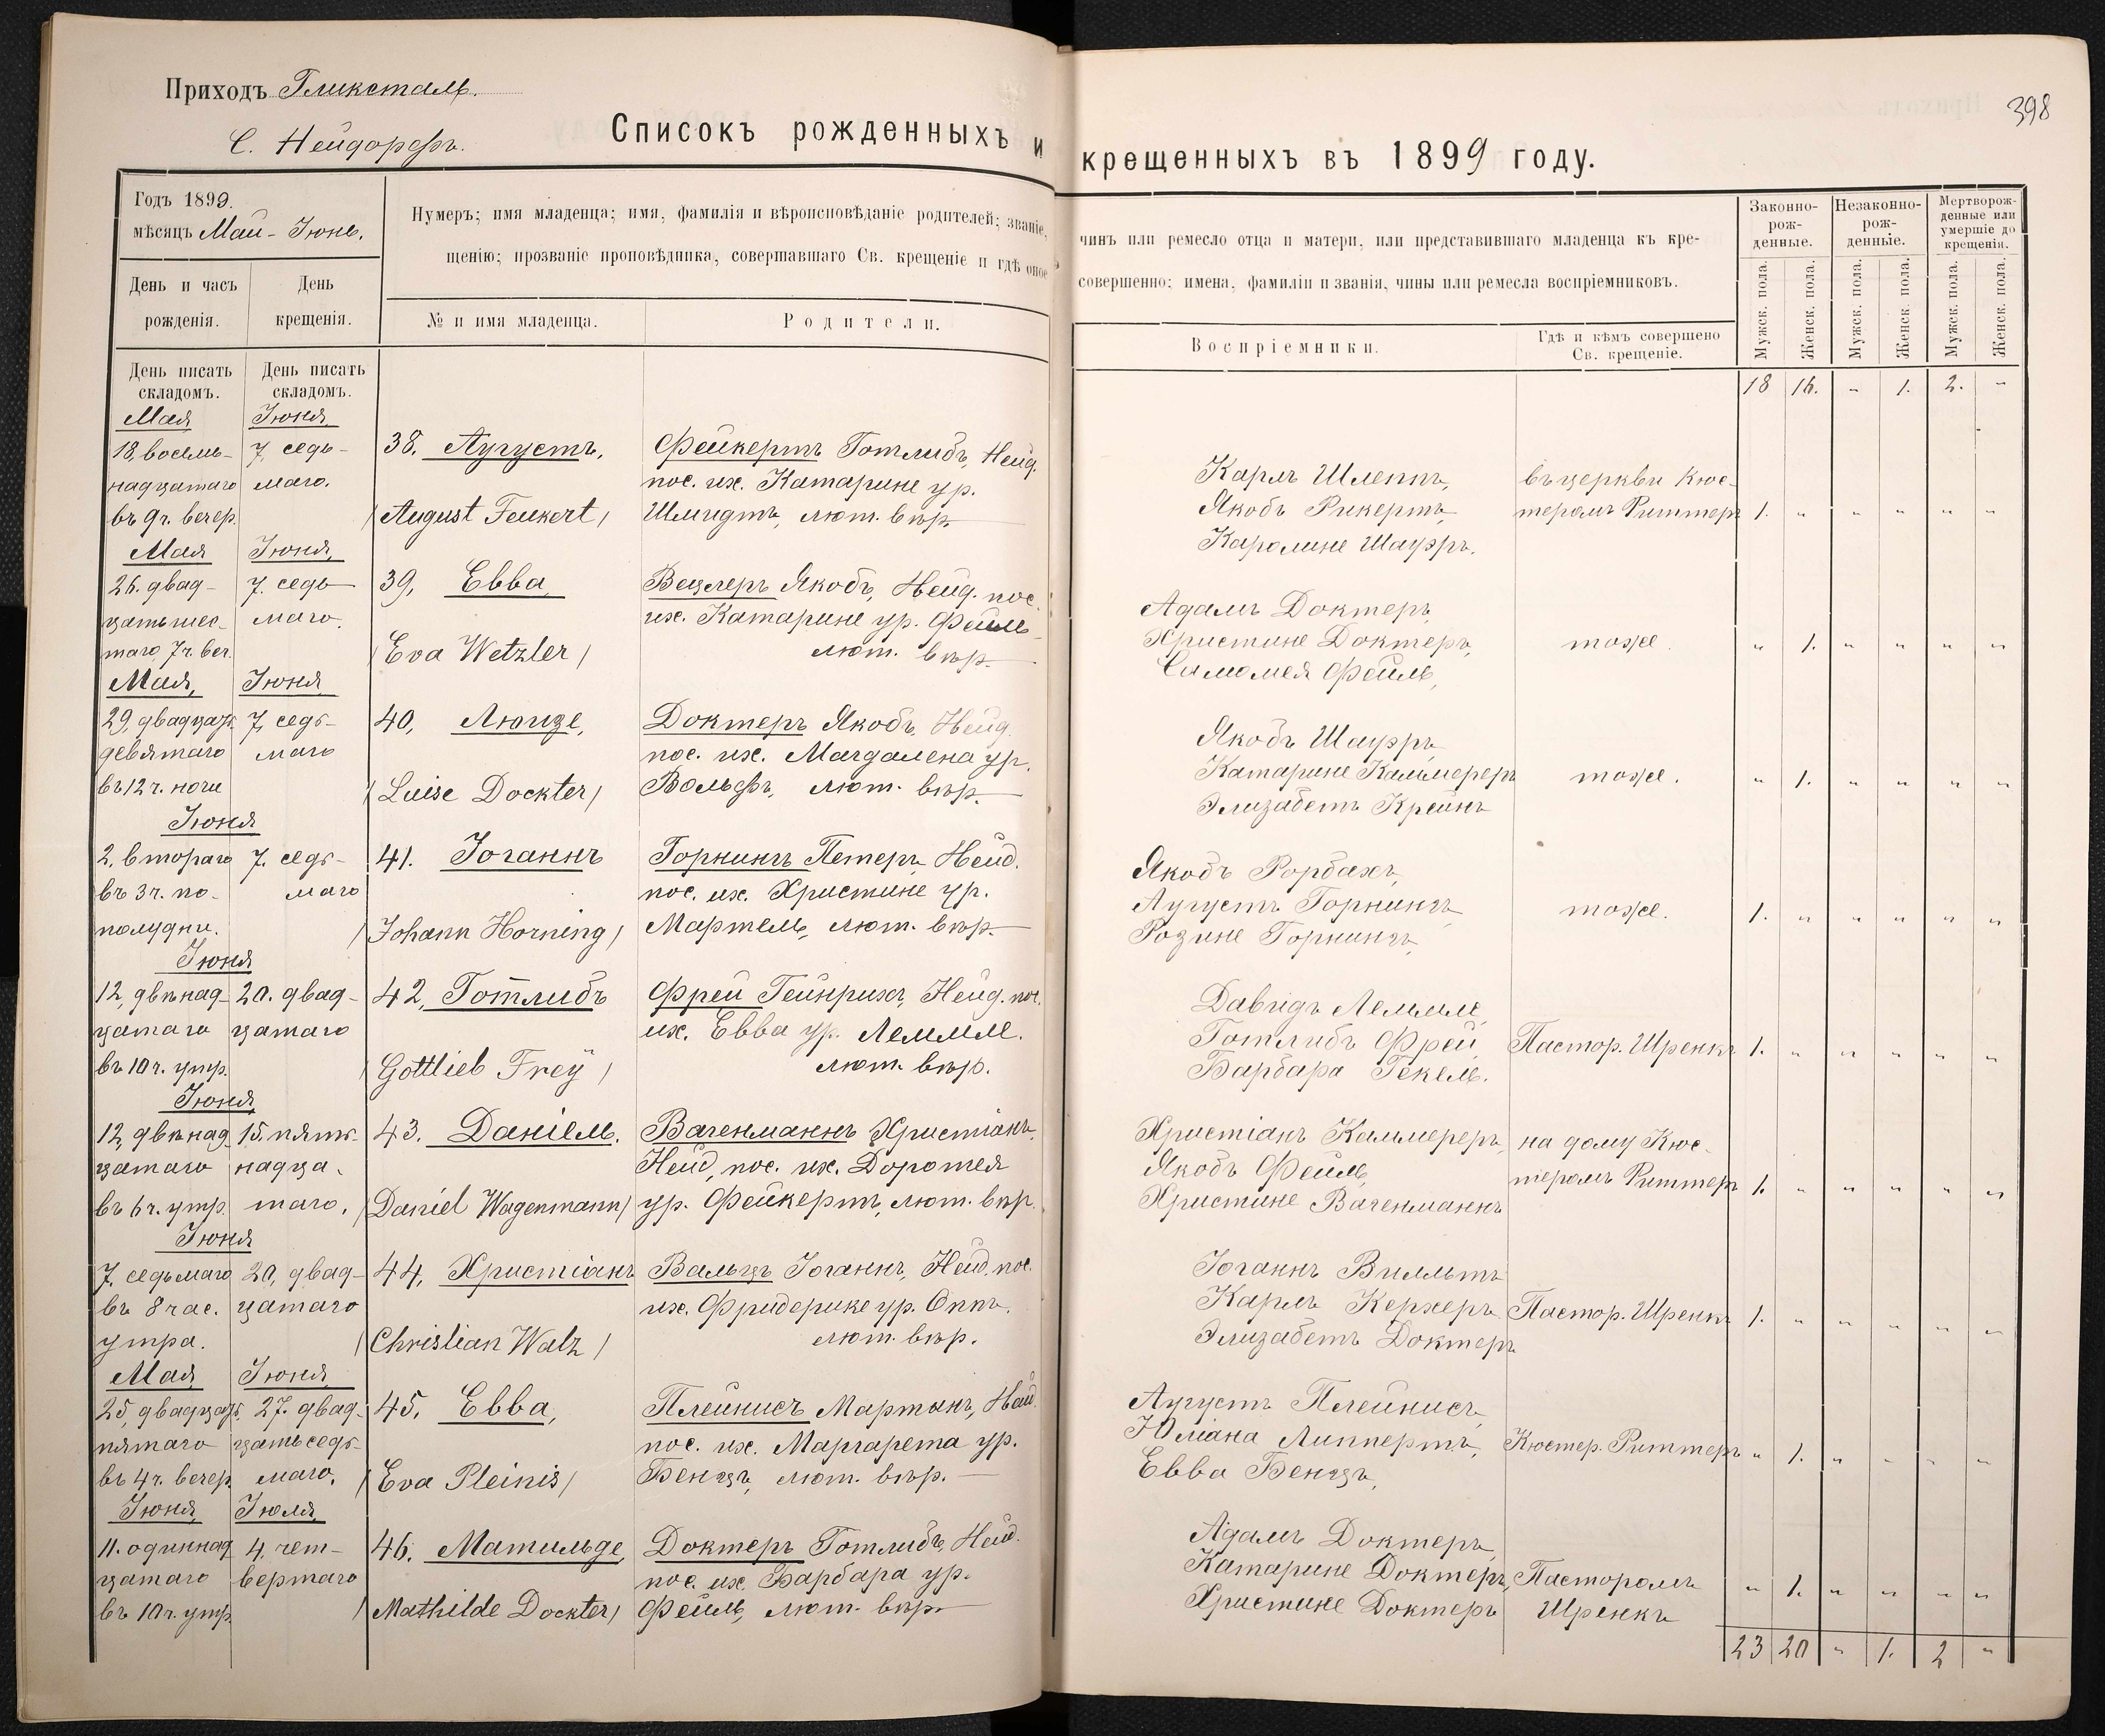 Приходъ Гликсталь.
С. Нейдорфъ.
Списокъ рожденныхъ и крещенныхъ въ 1899 году.
398
Годъ 1899.
мѣсяцъ Май - Іюнь.
День и часъ рожденія.
День крещенія.
Нумеръ; имя младенца; имя, фамилія и вѣроисповѣданіе родителей; званіе, чинъ или ремесло отца и матери, или представившаго младенца къ кре-
щенію; прозваніе проповѣдника, совершавшаго Св. крещеніе и гдѣ оное совершенно; имена, фамиліи и званія, чины или ремесла воспріемниковъ.
№ и имя младенца.
Родители.
Воспріемники.
Гдѣ и кѣмъ совершено
Св. крещеніе.
Законно-
рож-
денные.
Незаконно-
рож-
денные.
Мертворож-
денные или
умершіе до
крещенія.
Мужск. пола.
Женск. пола.
Мужск. пола.
Женск. пола.
Мужск. пола.
Женск. пола.
День писать
складомъ.
День писать
складомъ.
18 16. „ 1. 2. „
Мая
18, восемь-
надцатаго
въ 9 ч. вечер.
Іюня
7, седь-
маго.
38. Аугустъ,
/August Feukert/
Фейкертъ Готлибъ, Нейд.
пос. их. Катарине ур.
Шмидтъ, лют. вѣр.
Карлъ Шлеппъ,
Якобъ Рикертъ,
Каролине Шауэръ.
въ церкви Кюс-
теромъ Риттеръ
1. „ „ „ „ „
Мая
26. двад-
цатьшес-
таго 7 ч. веч.
Іюня,
7. седь-
маго.
39, Евва,
/Eva Wetzler/
Вецлеръ Якобъ, Нейд. пос.
их. Катарине ур. Фейль
лют. вѣр.
Адамъ Доктеръ,
Христине Доктеръ,
Саломея Фейль,
тоже.
„ 1. „ „ „ „
Мая,
29, двадцать
девятаго
въ 12 ч. ночи
Іюня
7, седь-
маго
40, Люизе,
/Luise Dockter/
Доктеръ Якобъ, Нейд.
пос. их. Магдалена ур.
Вольфъ, лют. вѣр.
Якобъ Шауэръ,
Катарине Каммереръ
Элизабетъ Крейнъ
тоже.
„ 1. „ „ „ „
Іюня
2, втораго
въ 3 ч. по-
полудни.
7. седь-
маго
41. Іоганнъ
/Johann Horning/
Горнингъ Петеръ, Нейд.
пос. их. Христине ур.
Мартель, лют. вѣр.
Якобъ Рорбахъ,
Аугустъ Горнингъ,
Розине Горнингъ,
тоже.
1. „ „ „ „ „
Іюня
12, двѣнад-
цатаго
въ 10 ч. утр.
20. двад-
цатаго
42, Готлибъ
/Gottlieb Freÿ/
Фрей Гейнрихъ, Нейд. пос.
их. Евва ур. Леммле.
лют. вѣр.
Давидъ Леммле,
Готлибъ Фрей,
Барбара Гекель.
Пастор. Шренкъ
1. „ „ „ „ „
Іюня
12, двѣнад-
цатаго
въ 6 ч. утр.
15. пять-
надца-
таго.
43. Даніель.
/Daniel Wagenmann/
Вагенманнъ Христіанъ,
Нейд. пос. их. Доротея
ур. Фейкертъ, лют. вѣр.
Христіанъ Каммереръ,
Якобъ Фейль,
Христине Вагенманнъ
на дому Кюс-
теромъ Риттеръ
1. „ „ „ „ „
Іюня
7. седьмаго
въ 8 час.
утра.
20, двад-
цатаго
44, Христіанъ
/Christian Walz/
Вальцъ Іоганнъ, Нейд. пос.
их. Фридерике ур. Оппъ.
лют. вѣр.
Іоганнъ Вилльтъ
Карлъ Керхеръ
Элизабетъ Доктеръ
Пастор. Шренкъ
1. „ „ „ „ „
Мая
25, двадцать
пятаго
въ 4 ч. вечер.
Іюня
27. двад-
цатьседь-
маго.
45, Евва,
/Eva Pleinis/
Плейнисъ Мартинъ, Нейд.
пос. их. Маргарета ур.
Бенцъ, лют. вѣр.
Аугустъ Плейнисъ,
Юліана Липпертъ,
Евва Бенцъ,
Кюстер. Риттеръ
„ 1. „ „ „ „
Іюня
11. одиннад
цатаго
въ 10 ч. утр.
Іюля
4, чет-
вертаго
46. Матильде,
/Mathilde Dockter/
Доктеръ Готлибъ, Нейд.
пос. их. Барбара ур.
Фейль, лют. вѣр.
Адамъ Доктеръ,
Катарине Доктеръ,
Христине Доктеръ
Пасторомъ
Шренкъ
„ 1. „ „ „ „
23 20 „ 1. 2 „